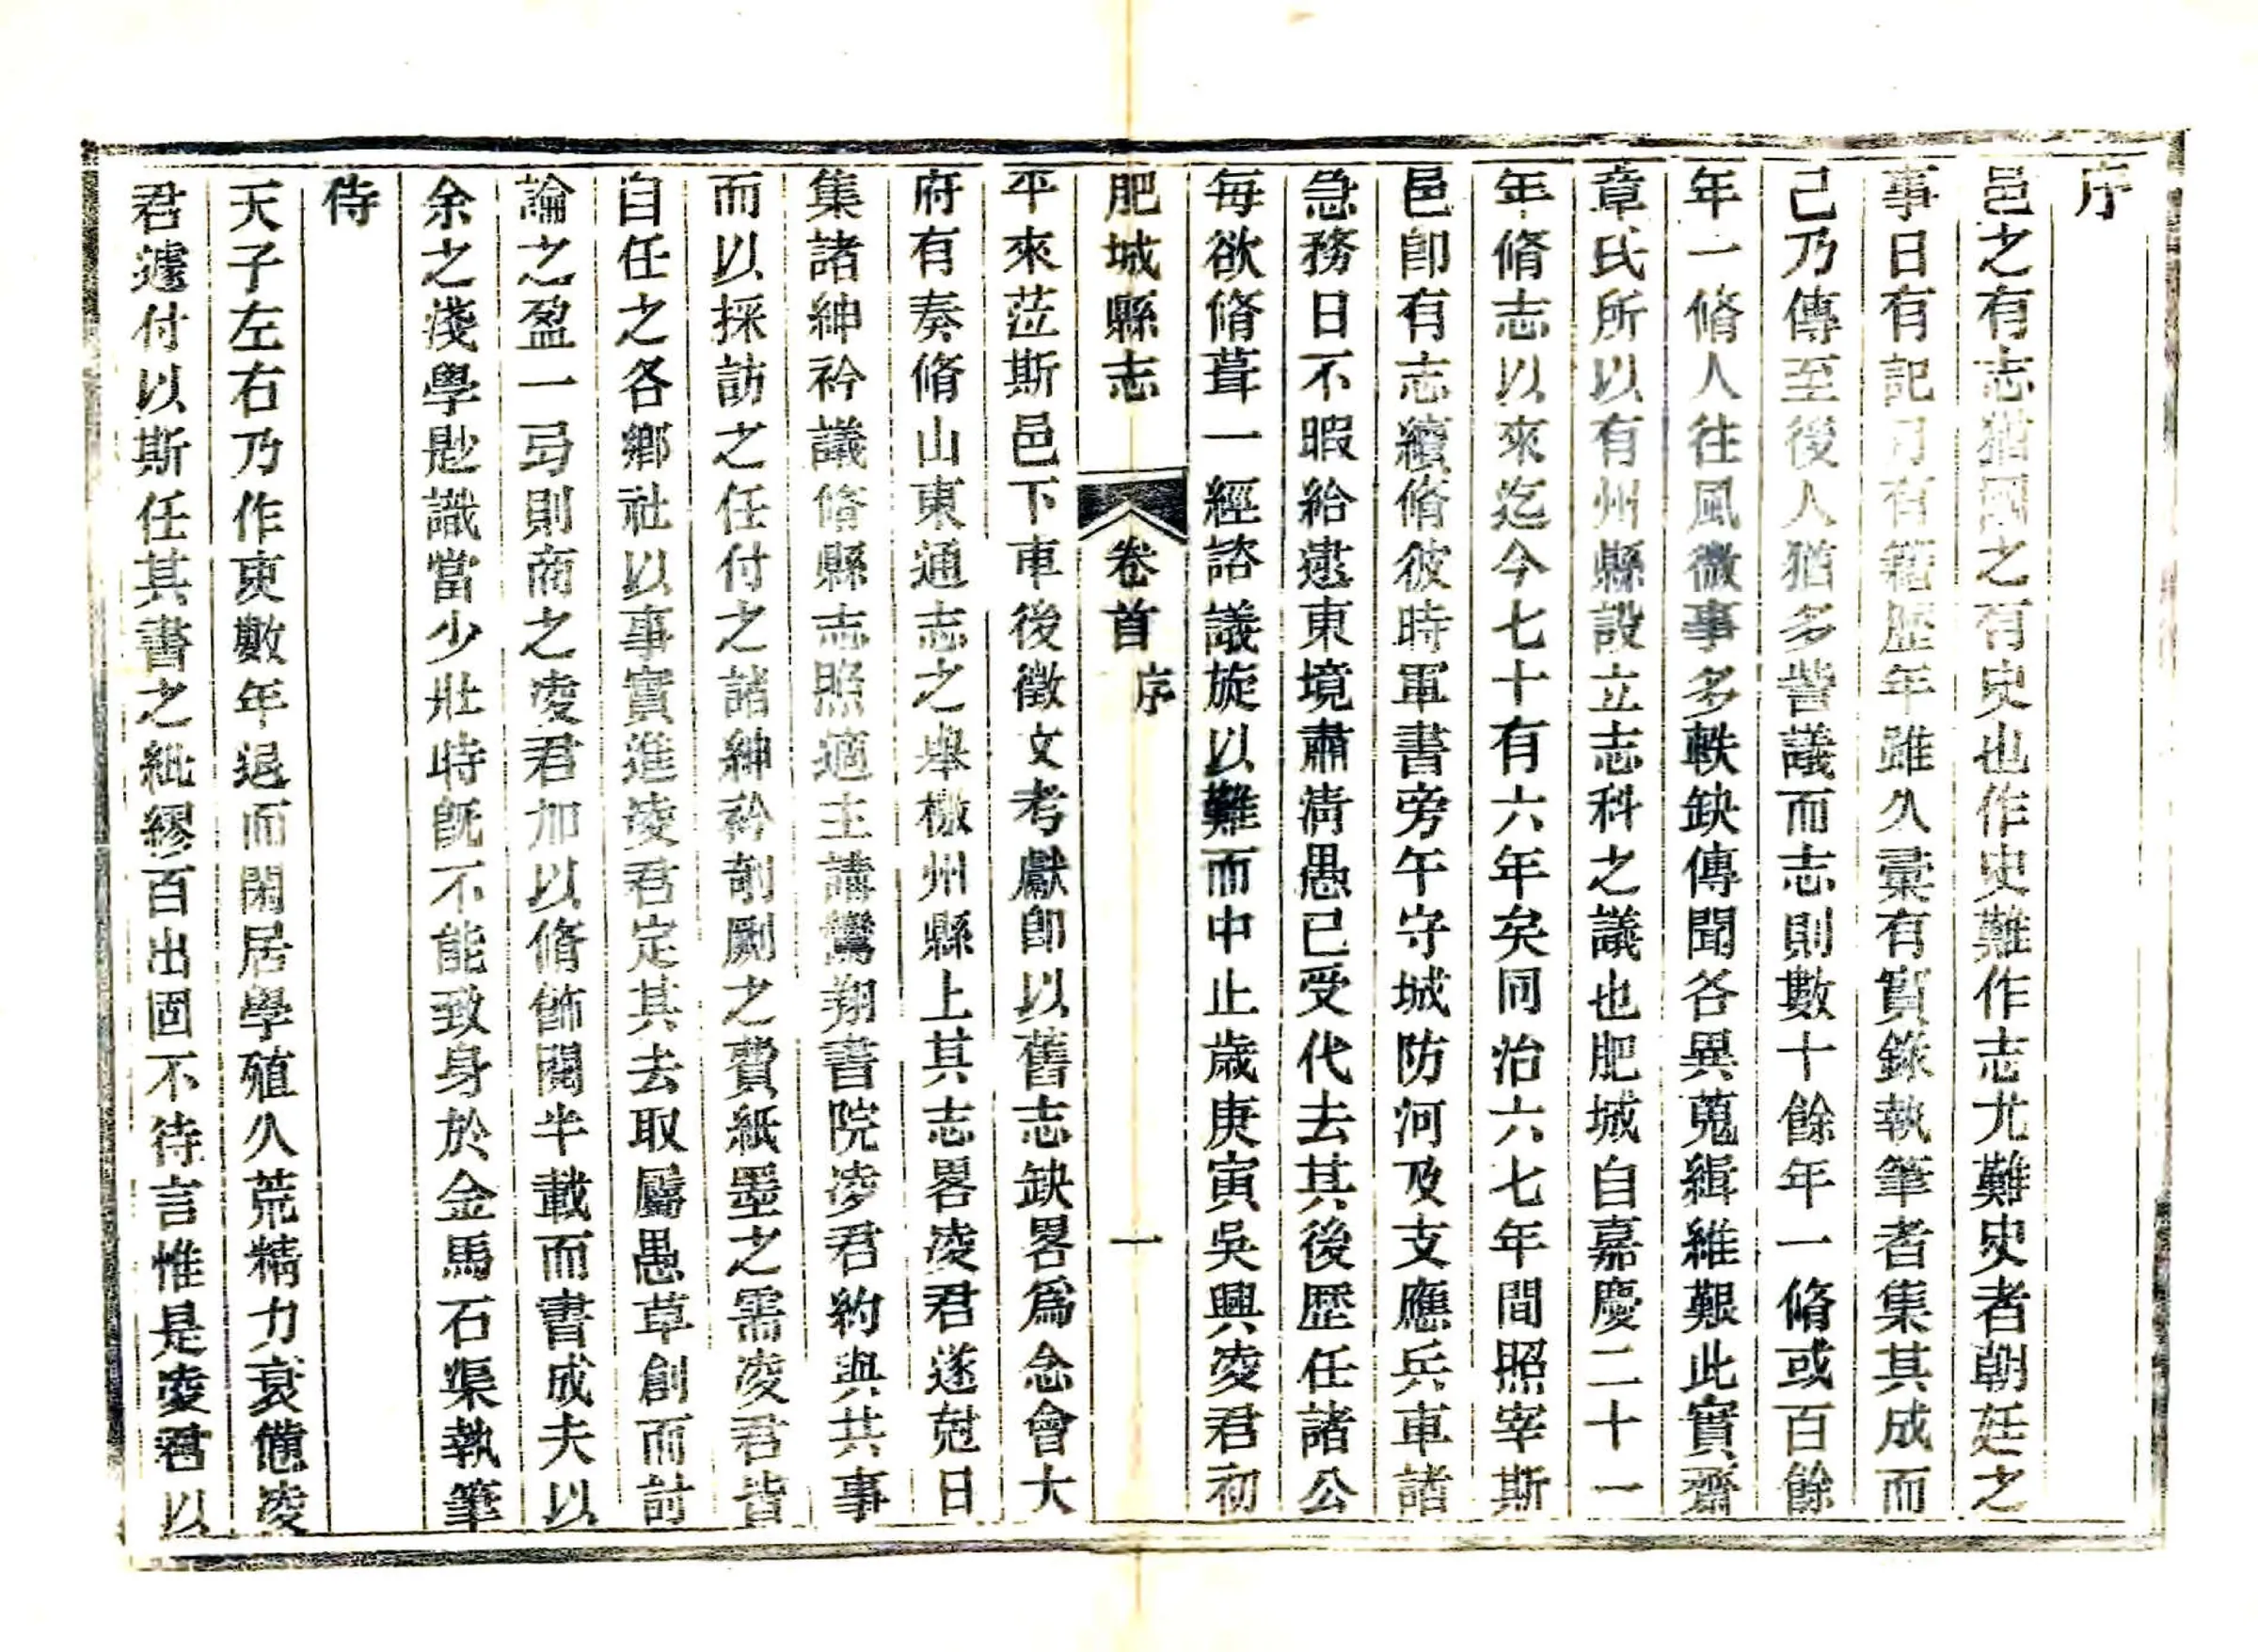 序
邑之有志猶國之有史也作史難作志尤難史者朝廷之
事日有記月有籍歷年雖久彙有實錄執筆者集其成而
己乃傳至後人猶多訾議而志則數十餘年一脩或百餘
年一脩人往風微事多軼缺傳聞各異蒐緝維艱此實齋
章氏所以有州縣設立志科之議也肥城自嘉慶二十一
年脩志以來迄今七十有六年矣同治六七年間照宰斯
邑卽有志續脩彼時軍書旁午守城防河及支應兵車諸
急務日不暇給逮東境肅淸愚已受代去其後歷任諸公
每欲脩葺一經諮議旋以難而中止歲庚寅吳興凌君初
肥城縣志 卷首 序 一
平來蒞斯邑下車後徵文考獻卽以舊志缺畧爲念會大
府有奏脩山東通志之舉檄州縣上其志畧凌君遂尅日
集諸紳衿議脩縣志照適主講鸞翔書院凌君約與共事
而以採訪之任付之諸紳衿剞劂之費紙墨之需凌君皆
自任之各鄉社以事實進凌君定其去取屬愚草創而討
論之盈一弓則商之凌君加以脩飾閱半載而書成夫以
余之淺學尠識當少壯時旣不能致身於金馬石渠執筆
侍
天子左右乃作吏數年退而閑居學殖久荒精力衰憊凌
君遽付以斯任其書之紕繆百出固不待言惟是凌君以